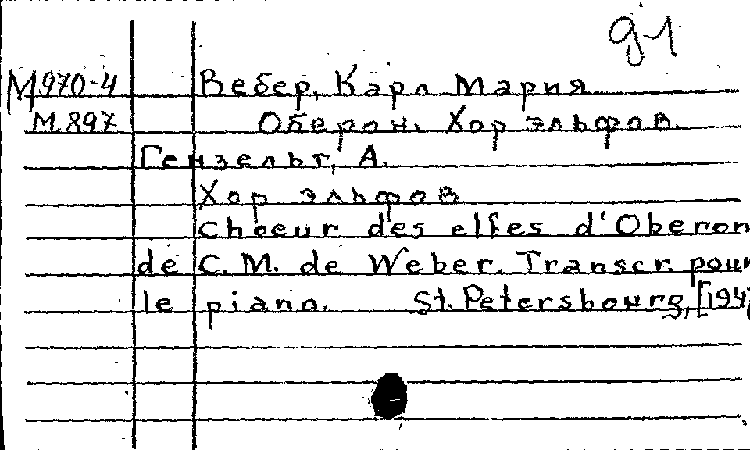 91
М970-4 Вебер, Карл Мария
М.897 Оберон. Хор эльфов.
Гензельт, А.
Хор эльфов
Choeur des elfes d'Oberon
de C. M. de Weber. Transcr. pour
le piano. St. Petersbourg,